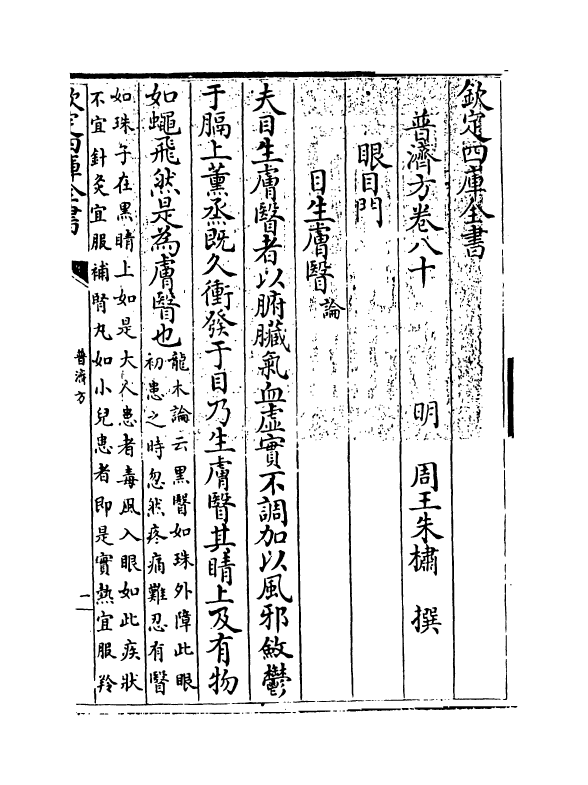 欽定四庫全書
普濟方卷八十 明 周王朱橚 撰
眼目門
目生膚瞖論
夫目生膚瞖者以腑臟氣血虛實不調加以風邪斂鬱
于膈上薰烝既久衝發于目乃生膚瞖其睛上及有物
如蠅飛然是為膚瞖也
龍木論云黑瞖如珠外障此眼
初患之時忽然疼痛難忍有瞖
如珠子在黑睛上如是大人患者毒風入眼如此疾狀
不宜針灸宜服補腎丸如小兒患者即是實熱宜服羚
欽定四庫全書
普濟方
一